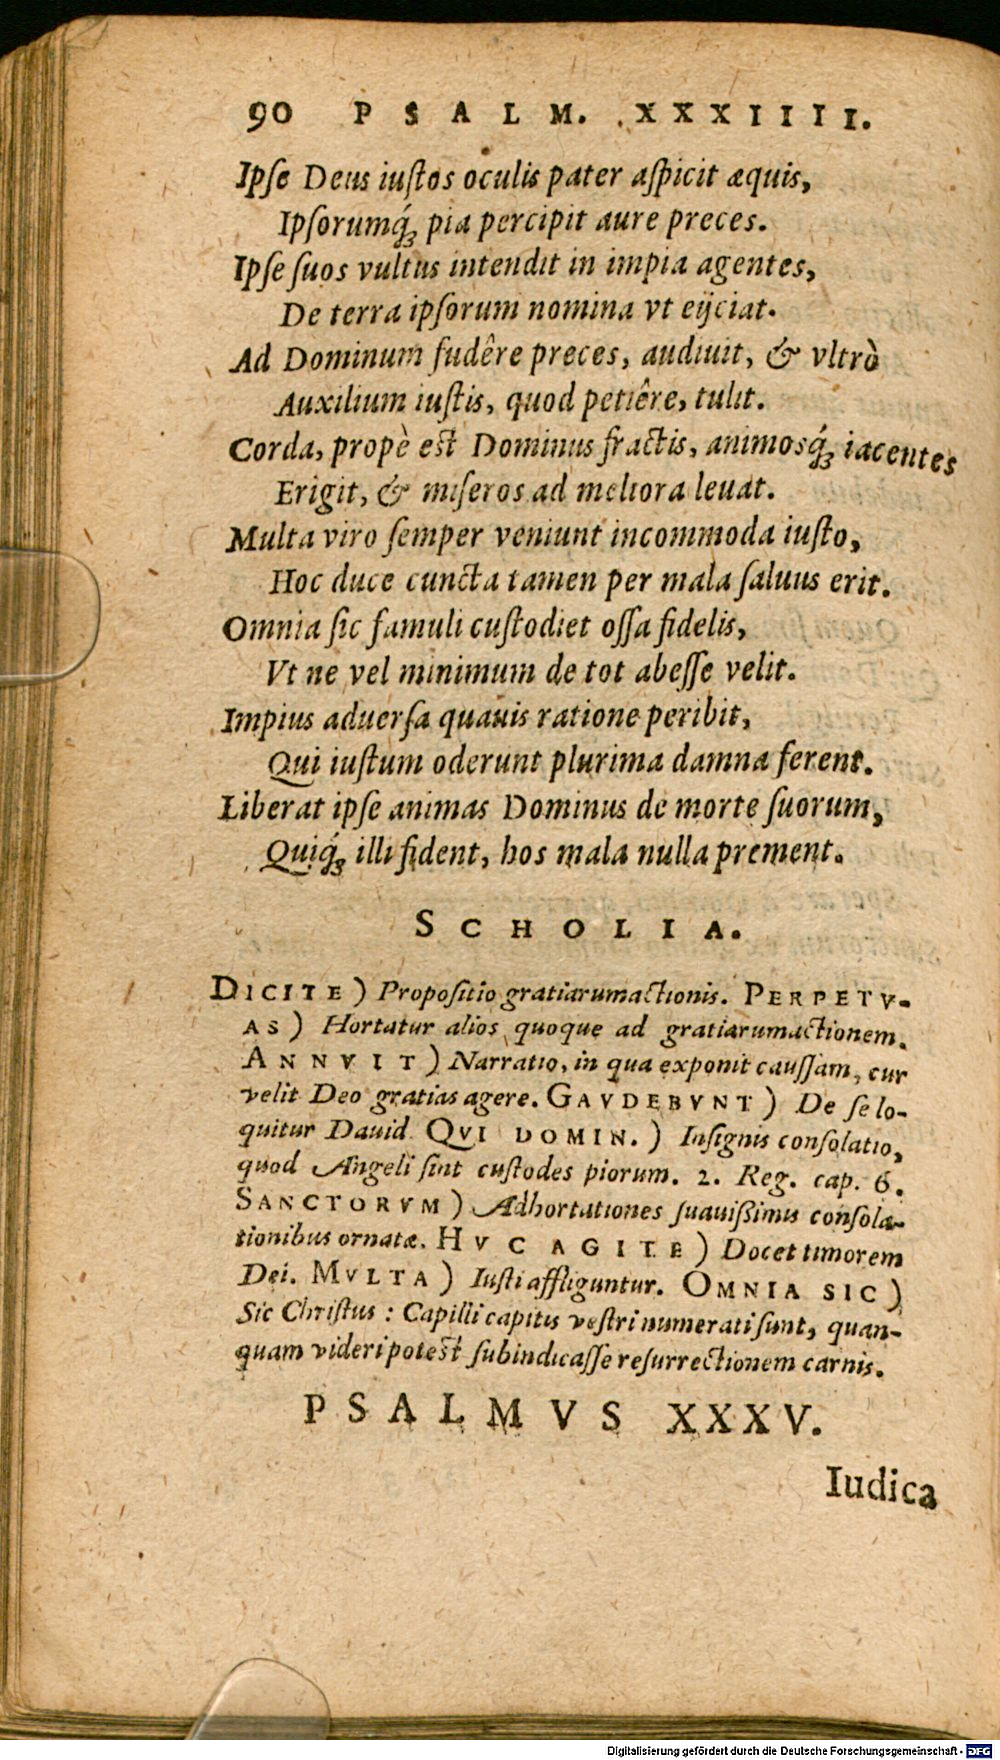 90 PSALM. XXXIIII.
Ipſe Deus iuſtos oculis pater aſpicit æquis,
Ipſorumq́ꝫ pia percipit aure preces.
Ipſe ſuos vultus intendit in impia agentes,
De terra ipſorum nomina vt eijciat.
Ad Dominum fudêre preces, audiuit, & vltrò
Auxilium iuſtis, quod petiêre, tulit.
Corda, propè eſt Dominus fractis, animosq́ꝫ iacentes
Erigit, & miſeros ad meliora leuat.
Multa viro ſemper veniunt incommoda iuſto,
Hoc duce cuncta tamen per mala ſaluus erit.
Omnia ſic famuli cuſtodiet oſſa fidelis,
Vt ne vel minimum de tot abeſſe velit.
Impius aduerſa quauis ratione peribit,
Qui iuſtum oderunt plurima damna ferent.
Liberat ipſe animas Dominus de morte ſuorum,
Quiq́ꝫ illi fident, hos mala nulla prement.
SCHOLIA.
DICITE) Propoſitio gratiarumactionis. PERPETV-
AS) Hortatur alios quoque ad gratiarumactionem.
ANNVIT) Narratio, in qua exponit cauſſam, cur
velit Deo gratias agere. GAVDEBVNT) De ſe lo-
quitur Dauid. QVI DOMIN.) Inſignis conſolatio,
quod Angeli ſint cuſtodes piorum. 2. Reg. cap. 6.
SANCTORVM) Adhortationes ſuauißimis conſola-
tionibus ornatæ. HVC AGITE) Docet timorem
Dei. MVLTA) Iuſti affliguntur. OMNIA SIC)
Sic Chriſtus: Capilli capitis veſtri numerati ſunt, quan-
quam videri poteſt ſubindicaſſe reſurrectionem carnis.
PSALMVS XXXV.
Iudica
Digitalisierung gefördert durch die Deutsche Forschungsgemeinschaft - DFG